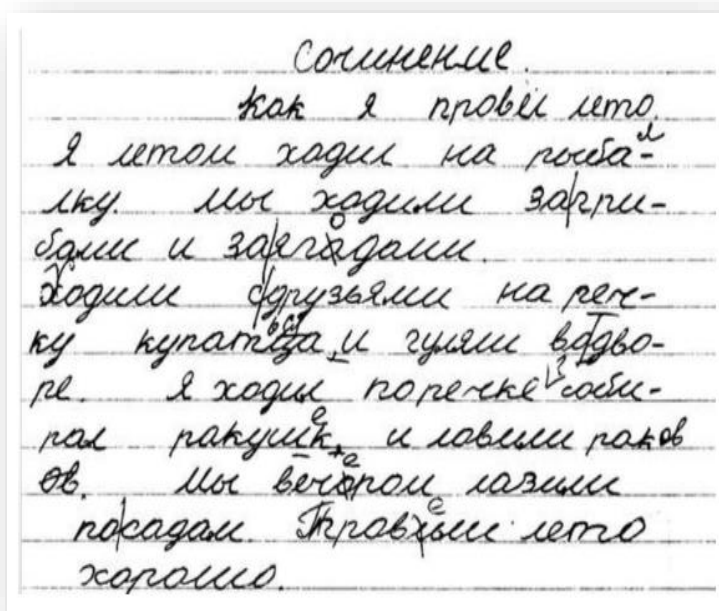 Сочинение.
Как я провёл лето.
Я летом ходил на рыба-
лку. Мы ходили загри-
бами и заягадами.
Ходили сдрузьями на реч-
ку купатца и гуляли водво-
ре. Я ходил поречке соби-
рал ракушк, и ловили раков
ов. Мы вечором лазили
посадам. Правили лето
хорошо.